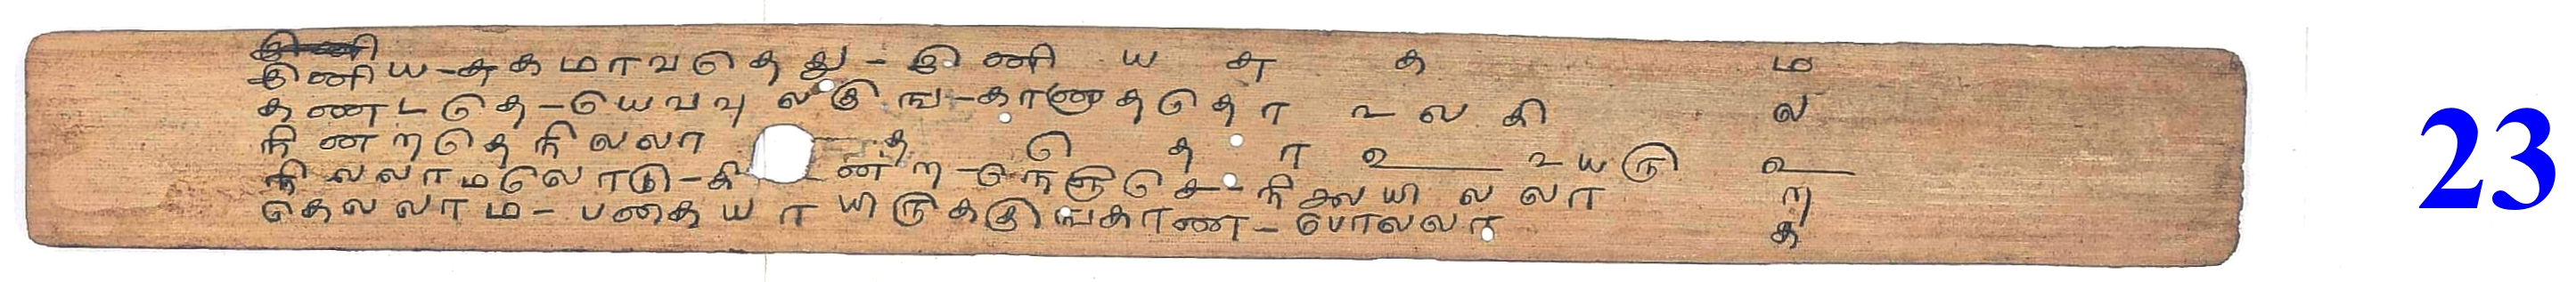 இணிய-சுகமாவதெது-இணி ய சு க ம
கண்டதெ-யெவவுலகுங-காணததொ உலகி ல
நினறதெநிலலா த தொ உ உயரு உ
நிலலாமலொடு-கினற-நெஞசெ-நிலையிலலா ற
தெலலாம-பகையாயிருககுஙகாண-பொலலா த
23